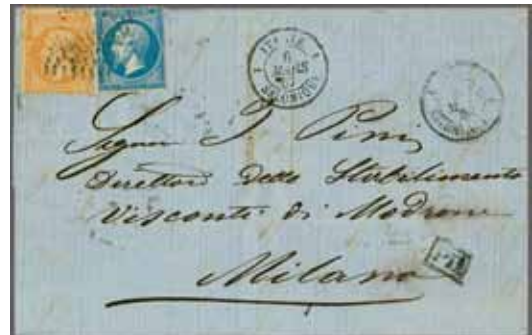 6
MARS
SALONIQUE
Signor J. Pini
Direttore dello Stabilimento
Visconti di Modrone
Milano
P.D.